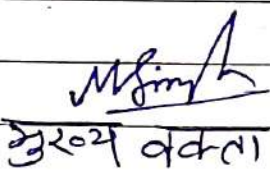 MSingh
मुख्य वक्ता